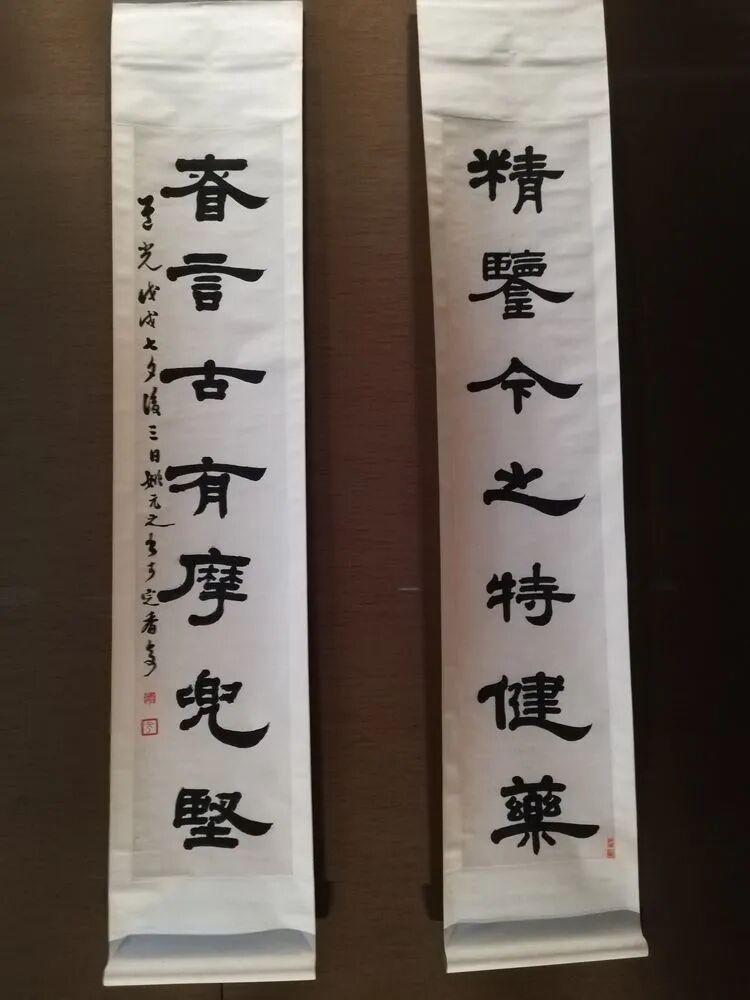 精鑒今之特健藥
眘言古有摩兜堅
道光戊戌七夕後三日姚元之書于定香